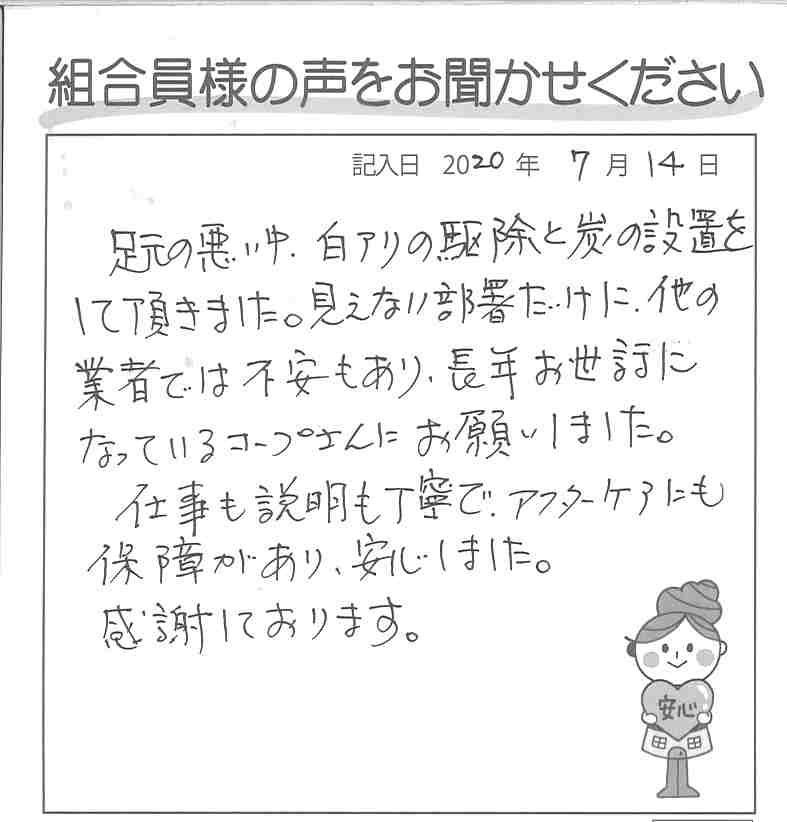 組合員様の声をお聞かせください
記入日 2020年 7月14日
足元の悪い中、白アリの駆除と炭の設置を
して頂きました。見えない部署だけに、他の
業者では不安もあり、長年お世話に
なっているコープさんにお願いしました。
仕事も説明も丁寧で、アフターケアにも
保障があり、安心しました。
感謝しております。
安心